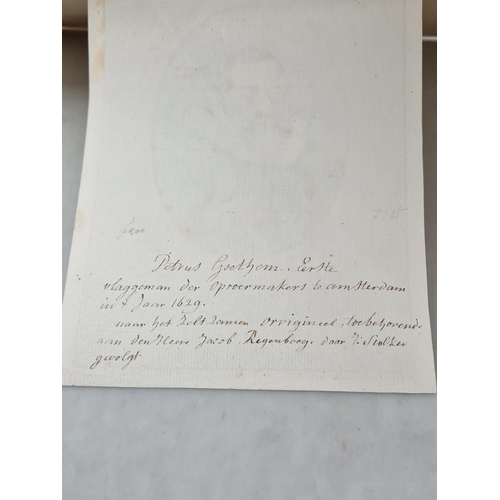 Petrus Goethem. Eerste
vlaggeman der oproermakers te amsterdam
in 't Jaar 1629.
naar het Zeltzamen orrigineel, toebehorende
aan den Heere Jacob Regenboog. door J: Stolker
gevolgt